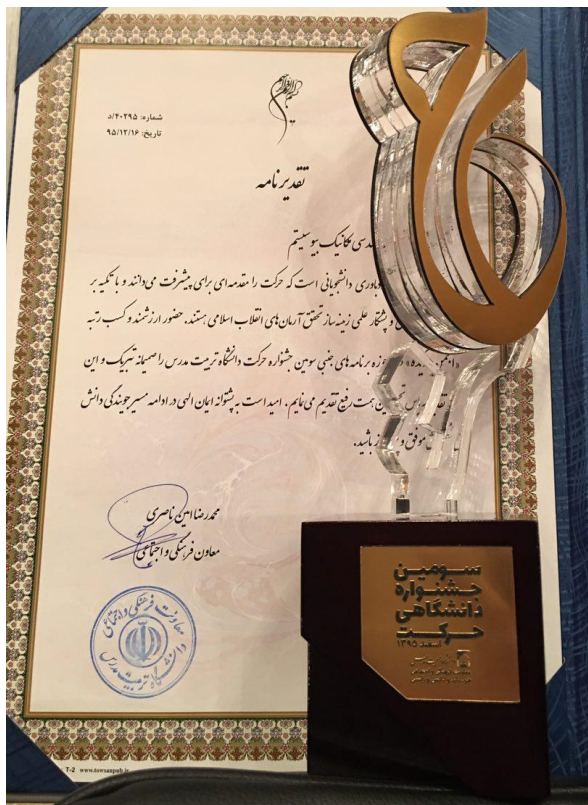 شماره: ۴۰۲۹۵/د
تاریخ: ۹۵/۱۲/۱۶
تقدیرنامه
مکانیک بیوسیستم
دانشجویانی است که حرکت را مقدمه‌ای برای پیشرفت می‌دانند و با تکیه بر
و پشتکار علمی زمینه‌ساز تحقق آرمان‌های انقلاب اسلامی هستند. حضور ارزشمند و کسب رتبه
برنامه‌های جنبی سومین جشنواره حرکت دانشگاه تربیت مدرس را صمیمانه تبریک و این
همت رفیع تقدیم می‌نمایم. امید است به پشتوانه ایمان الهی در ادامه مسیر جویندگی دانش
موفق و
باشید.
محمدرضا امین ناصری
معاون فرهنگی و اجتماعی
معاونت فرهنگی و اجتماعی
دانشگاه تربیت مدرس
سومین
جشنواره
دانشگاهی
حرکت
اسفند ۱۳۹۵
T-2 www.towsanpub.ir